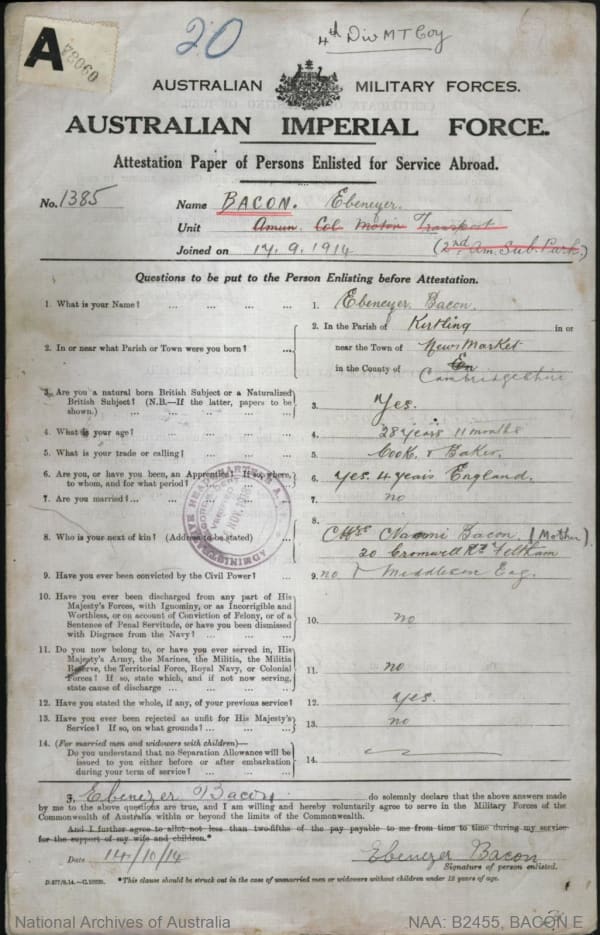 A
78060
20
4th Div M T Coy
AUSTRALIAN MILITARY FORCES.
AUSTRALIAN IMPERIAL FORCE.
Attestation Paper of Persons Enlisted for Service Abroad.
No. 1385 Name BACON. Ebenezer.
Unit Amun. Col Motor Transport
Joined on 17.9.1914 (2nd Am. Sub. Park.)
Questions to be put to the Person Enlisting before Attestation.
1. What is your Name? ... ... ... 1. Ebenezer Bacon.
2. In or near what Parish or Town were you born? ... 2. In the Parish of Kirtling in or
near the Town of NewsMarket
in the County of Cambridgeshire
3. Are you a natural born British Subject or a Naturalized
British Subject? (N.B.—If the latter, papers to be
shown.) ... ... ... ... 3. Yes.
4. What is your age? ... ... ... 4. 28 years 11 months
5. What is your trade or calling? ... ... 5. Cook & Baker.
6. Are you, or have you been, an Apprentice? If so, where,
to whom, and for what period? ... 6. Yes. 4 years England.
7. Are you married? ... ... ... 7. no
8. Who is your next of kin? (Address to be stated) ... 8. Mrs Naomi Bacon. (Mother)
20 Cromwell Rd Feltham
9. Have you ever been convicted by the Civil Power? ... 9. no Middlesex Eng.
10. Have you ever been discharged from any part of His
Majesty's Forces, with Ignominy, or as Incorrigible and
Worthless, or on account of Conviction of Felony, or of a
Sentence of Penal Servitude, or have you been dismissed
with Disgrace from the Navy? ... ... 10. no
11. Do you now belong to, or have you ever served in, His
Majesty's Army, the Marines, the Militia, the Militia
Reserve, the Territorial Force, Royal Navy, or Colonial
Forces? If so, state which, and if not now serving,
state cause of discharge ... ... ... 11. no
12. Have you stated the whole, if any, of your previous service? 12. Yes.
13. Have you ever been rejected as unfit for His Majesty's
Service? If so, on what grounds? ... ... 13. no
14. (For married men and widowers with children)—
Do you understand that no Separation Allowance will be
issued to you either before or after embarkation
during your term of service? ... ... 14.
I, Ebenezer Bacon do solemnly declare that the above answers made
by me to the above questions are true, and I am willing and hereby voluntarily agree to serve in the Military Forces of the
Commonwealth of Australia within or beyond the limits of the Commonwealth.
And I further agree to allot not less than two-fifths of the pay payable to me from time to time during my service
for the support of my wife and children.*
Date 14/10/14 Ebenezer Bacon
Signature of person enlisted.
*This clause should be struck out in the case of unmarried men or widowers without children under 18 years of age.
National Archives of Australia NAA: B2455, BACON E